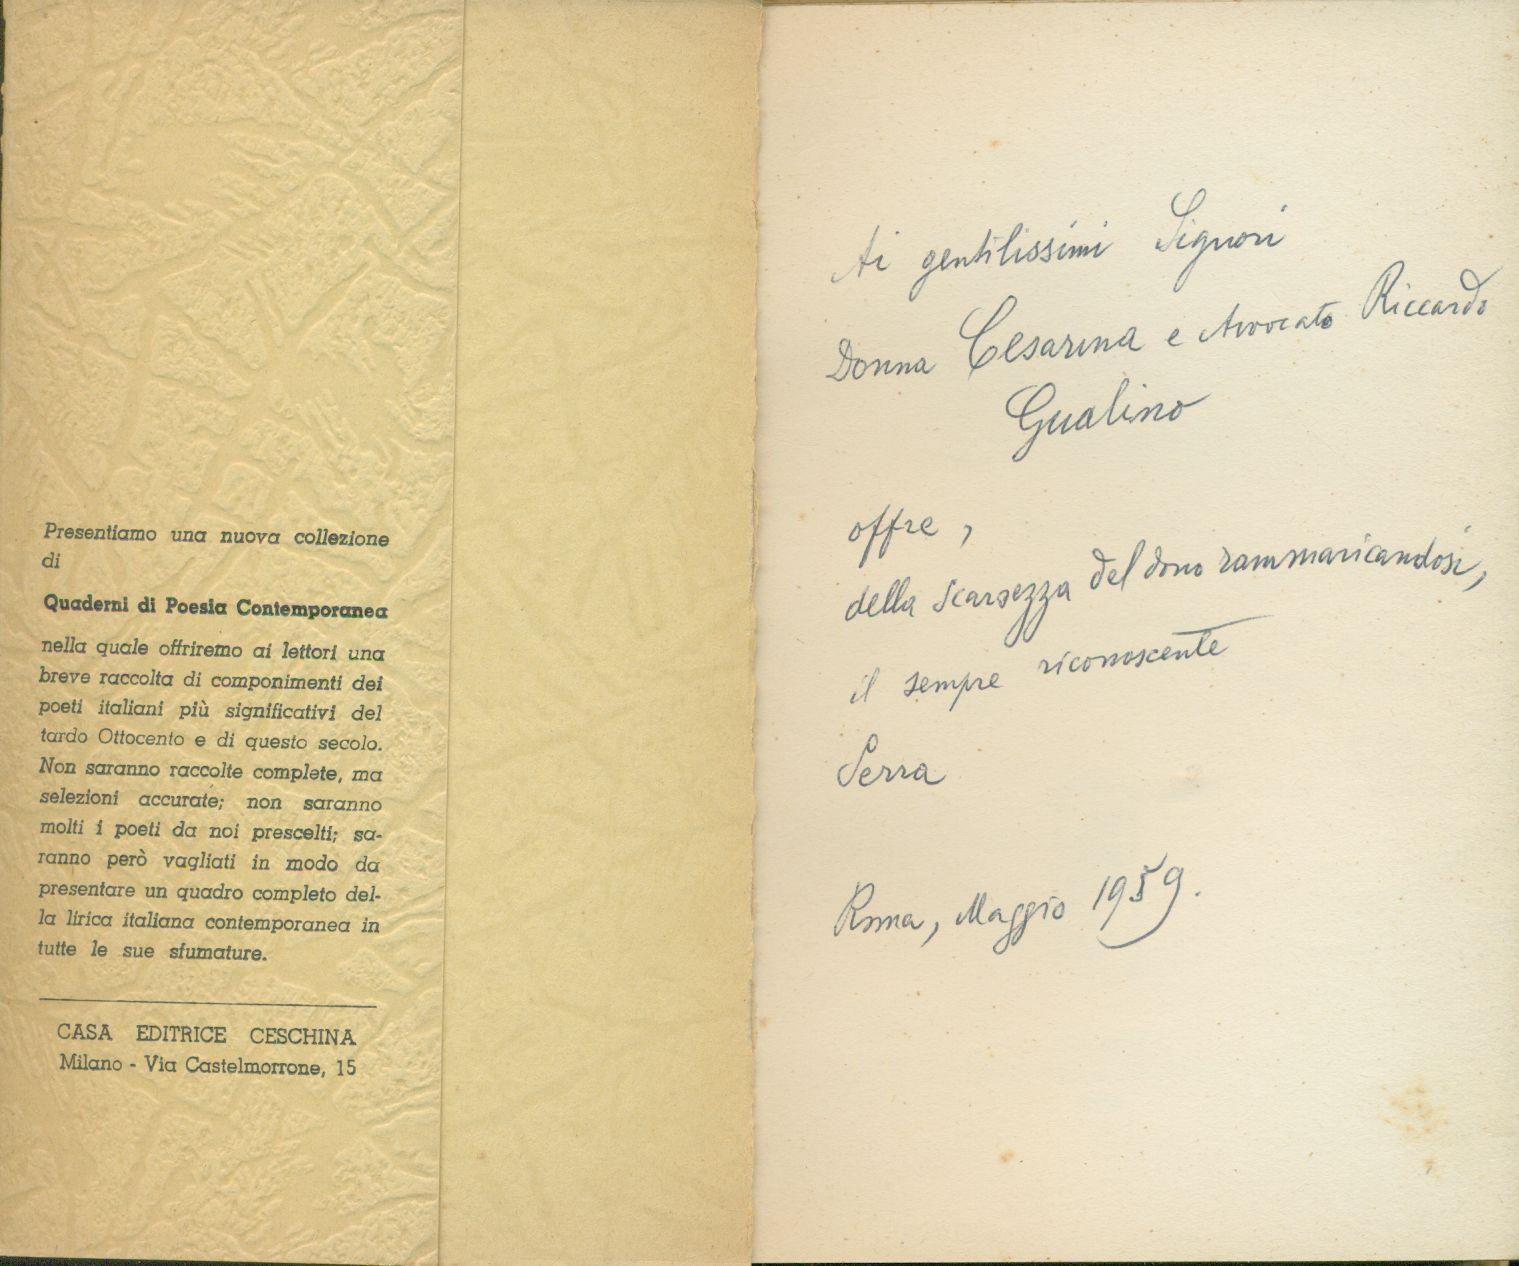 Presentiamo una nuova collezione
di
Quaderni di Poesia Contemporanea
nella quale offriremo ai lettori una
breve raccolta di componimenti dei
poeti italiani più significativi del
tardo Ottocento e di questo secolo.
Non saranno raccolte complete, ma
selezioni accurate; non saranno
molti i poeti da noi prescelti; sa-
ranno però vagliati in modo da
presentare un quadro completo del-
la lirica italiana contemporanea in
tutte le sue sfumature.
CASA EDITRICE CESCHINA
Milano - Via Castelmorrone, 15
Ai gentilissimi Signori
Donna Cesarina e Avvocato Riccardo
Gualino
offre,
della scarsezza del dono rammaricandosi,
il sempre riconoscente
Serra
Roma, Maggio 1959.